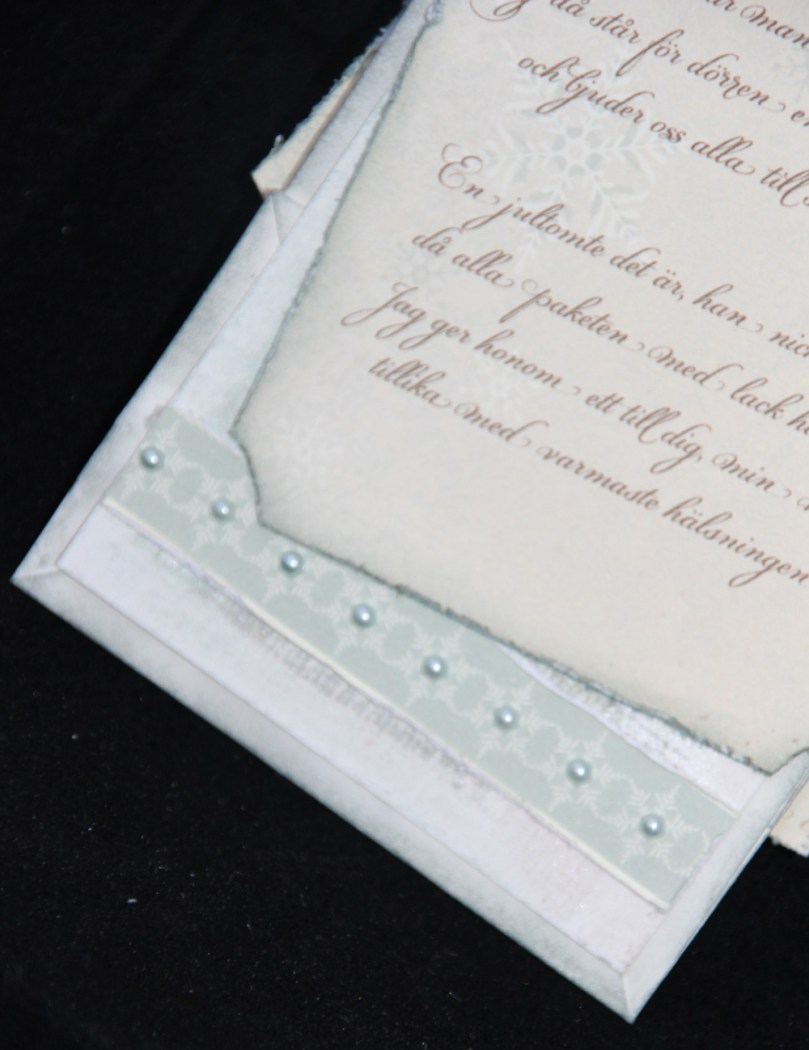 då står för dörren
och bjuder oss alla till
En jultomte det är, han
då alla paketen med lack
Jag ger honom ett till dig, min
tillika med varmaste hälsningen